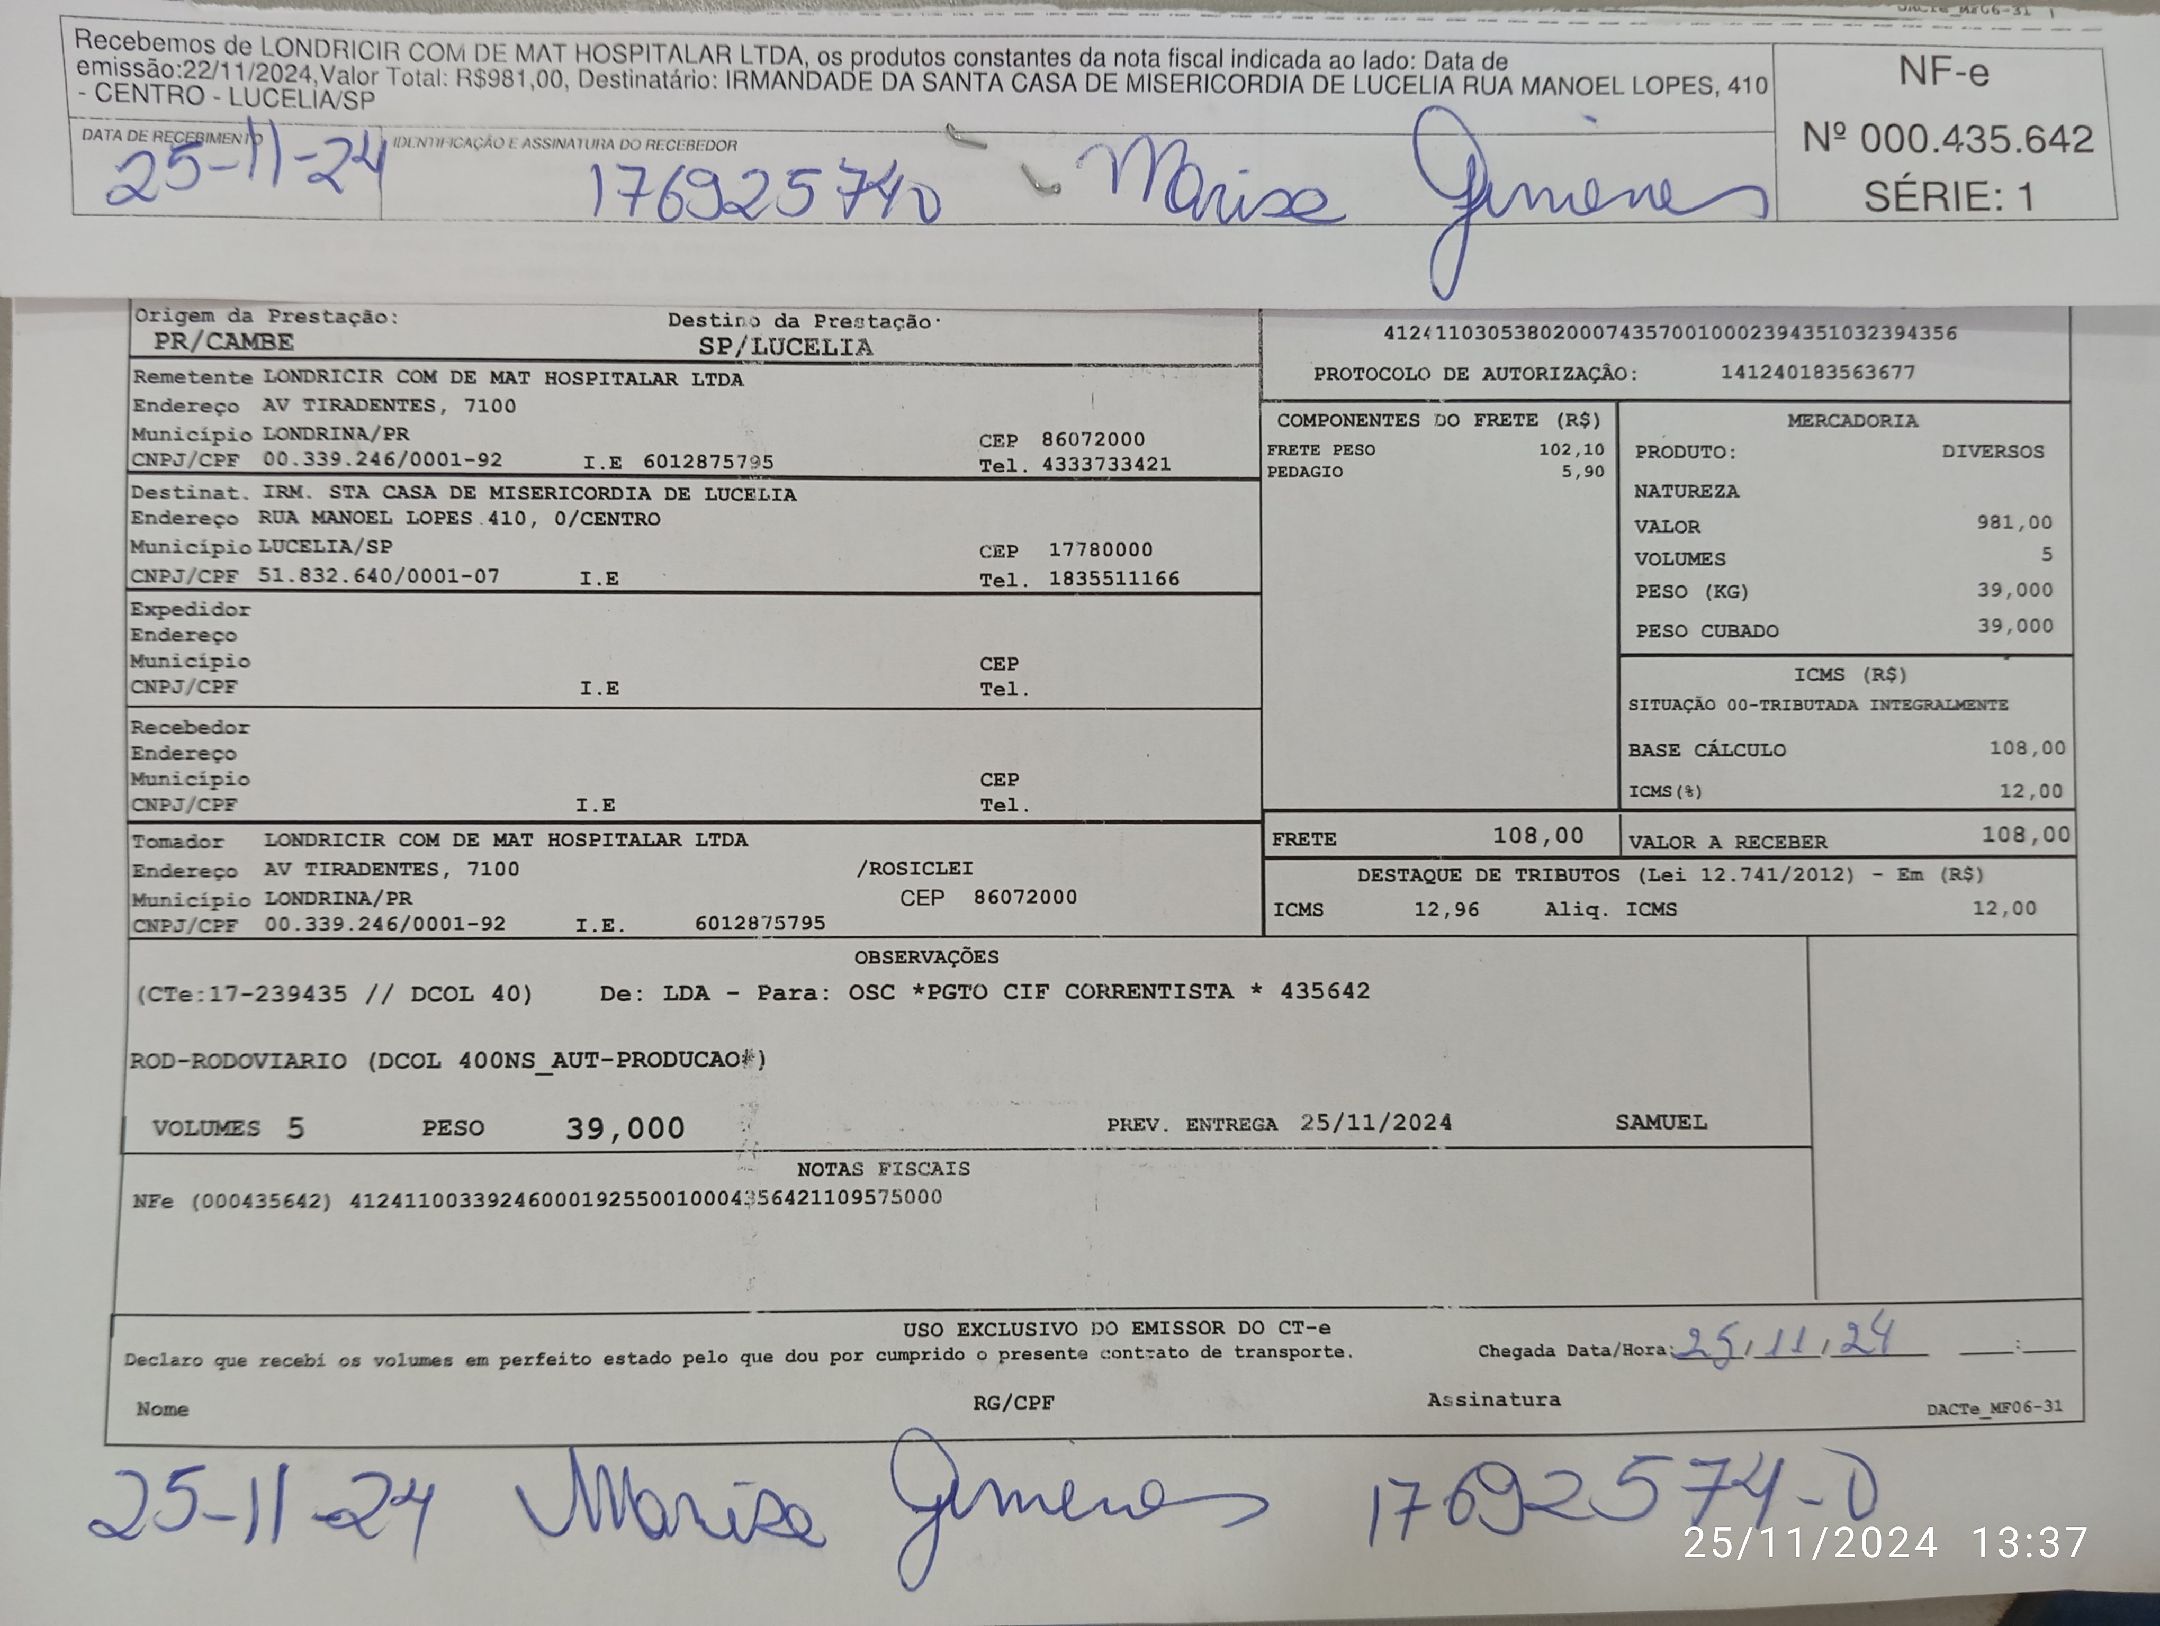 Recebemos de LONDRICIR COM DE MAT HOSPITALAR LTDA, os produtos constantes da nota fiscal indicada ao lado: Data de
emissão:22/11/2024,Valor Total: R$981,00, Destinatário: IRMANDADE DA SANTA CASA DE MISERICORDIA DE LUCELIA RUA MANOEL LOPES, 410
- CENTRO - LUCELIA/SP
NF-e
Nº 000.435.642
SÉRIE: 1
DATA DE RECEBIMENTO IDENTIFICAÇÃO E ASSINATURA DO RECEBEDOR
25-11-24 176925740 Marisa Gimenes
Origem da Prestação: Destino da Prestação:
PR/CAMBE SP/LUCELIA
41241103053802000743570010002394351032394356
PROTOCOLO DE AUTORIZAÇÃO: 141240183563677
Remetente LONDRICIR COM DE MAT HOSPITALAR LTDA
Endereço AV TIRADENTES, 7100
Município LONDRINA/PR CEP 86072000
CNPJ/CPF 00.339.246/0001-92 I.E 6012875795 Tel. 4333733421
Destinat. IRM. STA CASA DE MISERICORDIA DE LUCELIA
Endereço RUA MANOEL LOPES 410, 0/CENTRO
Município LUCELIA/SP CEP 17780000
CNPJ/CPF 51.832.640/0001-07 I.E Tel. 1835511166
Expedidor
Endereço
Município CEP
CNPJ/CPF I.E Tel.
Recebedor
Endereço
Município CEP
CNPJ/CPF I.E Tel.
Tomador LONDRICIR COM DE MAT HOSPITALAR LTDA
Endereço AV TIRADENTES, 7100 /ROSICLEI
Município LONDRINA/PR CEP 86072000
CNPJ/CPF 00.339.246/0001-92 I.E. 6012875795
COMPONENTES DO FRETE (R$)
FRETE PESO 102,10
PEDAGIO 5,90
MERCADORIA
PRODUTO: DIVERSOS
NATUREZA
VALOR 981,00
VOLUMES 5
PESO (KG) 39,000
PESO CUBADO 39,000
ICMS (R$)
SITUAÇÃO 00-TRIBUTADA INTEGRALMENTE
BASE CÁLCULO 108,00
ICMS(%) 12,00
FRETE 108,00 VALOR A RECEBER 108,00
DESTAQUE DE TRIBUTOS (Lei 12.741/2012) - Em (R$)
ICMS 12,96 Aliq. ICMS 12,00
OBSERVAÇÕES
(CTe:17-239435 // DCOL 40) De: LDA - Para: OSC *PGTO CIF CORRENTISTA * 435642
ROD-RODOVIARIO (DCOL 400NS_AUT-PRODUCAO*)
VOLUMES 5 PESO 39,000 PREV. ENTREGA 25/11/2024 SAMUEL
NOTAS FISCAIS
NFe (000435642) 41241100339246000192550010004356421109575000
USO EXCLUSIVO DO EMISSOR DO CT-e
Declaro que recebi os volumes em perfeito estado pelo que dou por cumprido o presente contrato de transporte. Chegada Data/Hora: 25/11/24 :
Nome RG/CPF Assinatura DACTe_MF06-31
25-11-24 Marisa Gimenes 17692574-0
25/11/2024 13:37